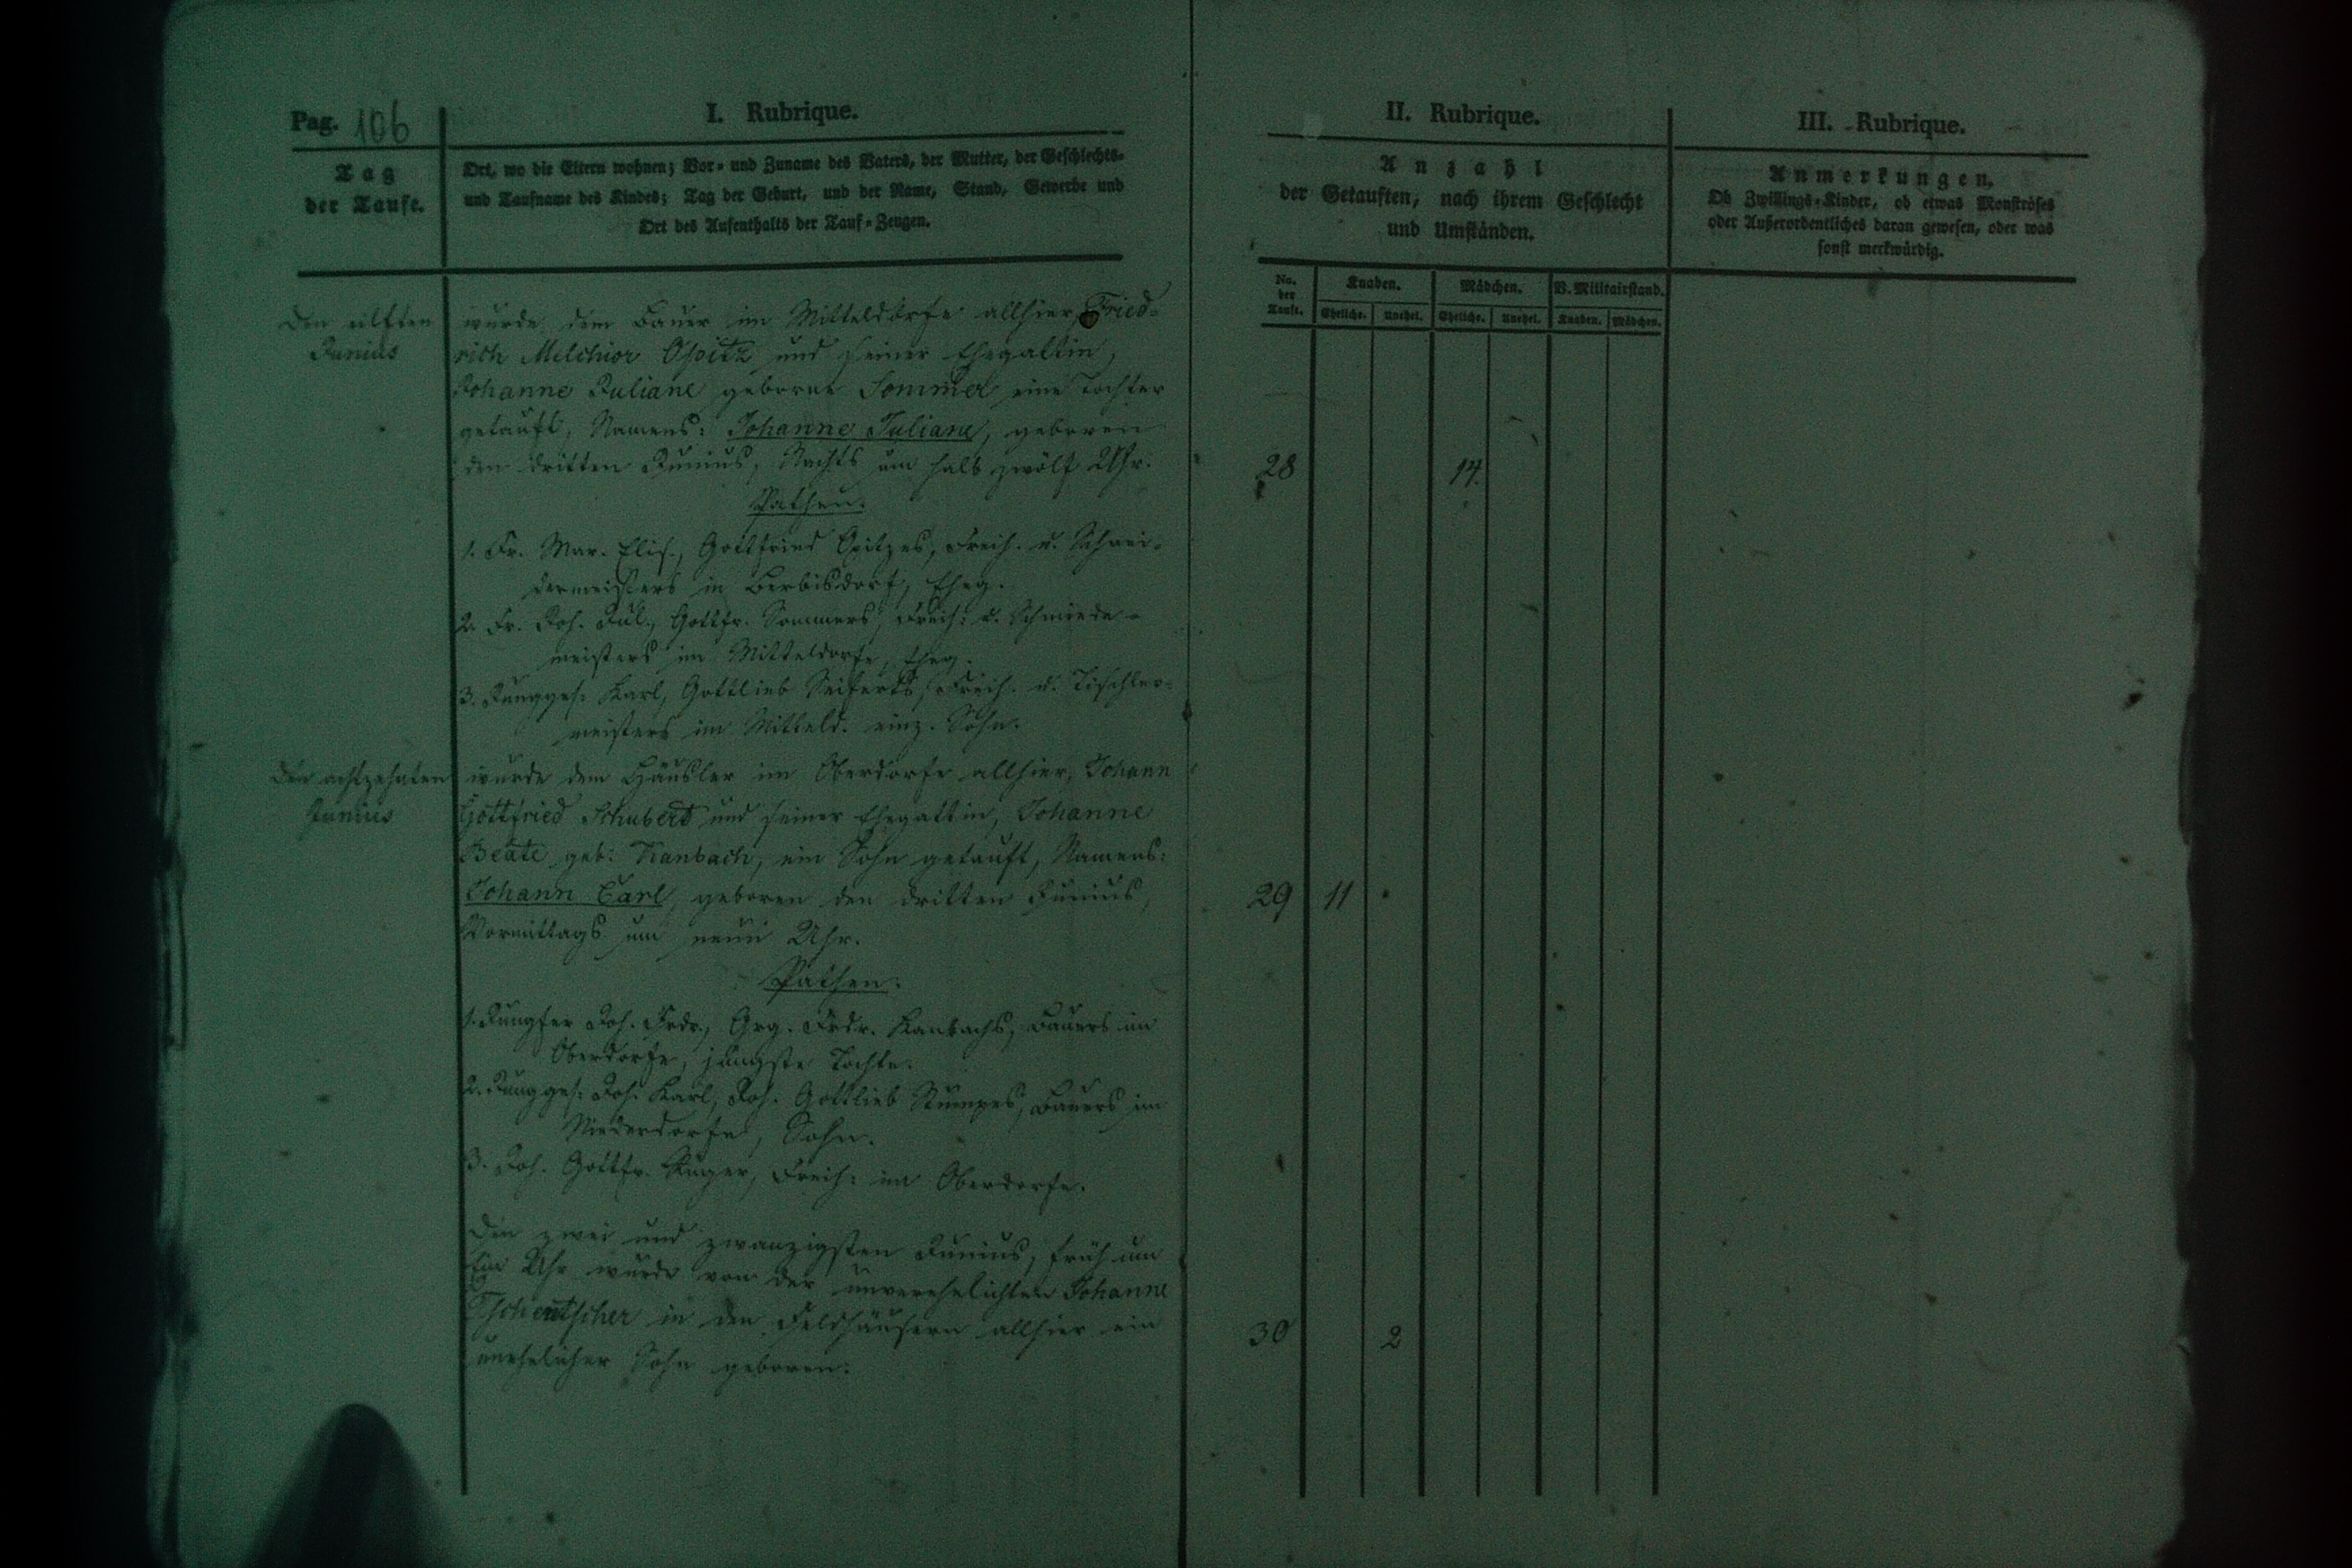 Pag. 106
I. Rubrique.
Tag
der Taufe.
Ort, wo die Eltern wohnen; Vor- und Zuname des Vaters, der Mutter, der Geschlechts-
und Taufname des Kindes; Tag der Geburt, und der Name, Stand, Gewerbe und
Ort des Aufenthalts der Tauf-Zeugen.
Den eilften
Junius
wurde dem Bauer im Mitteldorfe allhier, Fried-
rich Melchior Opitz und seiner Ehegattin,
Johanne Juliane geborne Sommer eine Tochter
getauft, Namens: Johanne Juliane, geboren
den dritten Junius, Nachts um halb zwölf Uhr.
Pathen:
1. Fr. Mar. Elis., Gottfried Opitzes, Freih. u. Schnei-
dermeisters in Berbisdorf, Eheg.
2. Fr. Joh. Jul., Gottfr. Sommers, Freih: u. Schmiede-
meisters im Mitteldorfe, Eheg.
3. Jungges: Karl, Gottlieb Seiferts, Freih. u. Tischler-
meisters im Mitteld. einz. Sohn.
Den achtzehnten
Junius
wurde dem Häusler im Oberdorfe allhier, Johann
Gottfried Schubert und seiner Ehegattin, Johanne
Beate geb: Kanbach, ein Sohn getauft, Namens:
Johann Carl, geboren den dritten Junius,
Vormittags um neun Uhr.
Pathen:
1. Jungfer Joh. Frdr., Grg. Frdr. Kanbachs, Bauers im
Oberdorfe, jüngste Tochter.
2. Jungges: Joh. Karl, Joh. Gottlieb Stumpes, Bauers im
Niederdorfe, Sohn.
3. Joh. Gottfr. Freih: im Oberdorfe.
Den zwei und zwanzigsten Junius, früh um
Ein Uhr wurde von der unverehelichten Johanne
Tschentscher in den Feldhäusern allhier ein
unehelicher Sohn geboren.
II. Rubrique.
Anzahl
der Getauften, nach ihrem Geschlecht
und Umständen.
No. der Taufe.
Knaben.
Mädchen.
V. Militairstand.
Eheliche. Unehel. Eheliche. Unehel. Knaben. Mädchen.
28 14.
29 11
30 2
III. Rubrique.
Anmerkungen,
Ob Zwillings-Kinder, ob etwas Monströses
oder Außerordentliches daran gewesen, oder was
sonst merkwürdig.